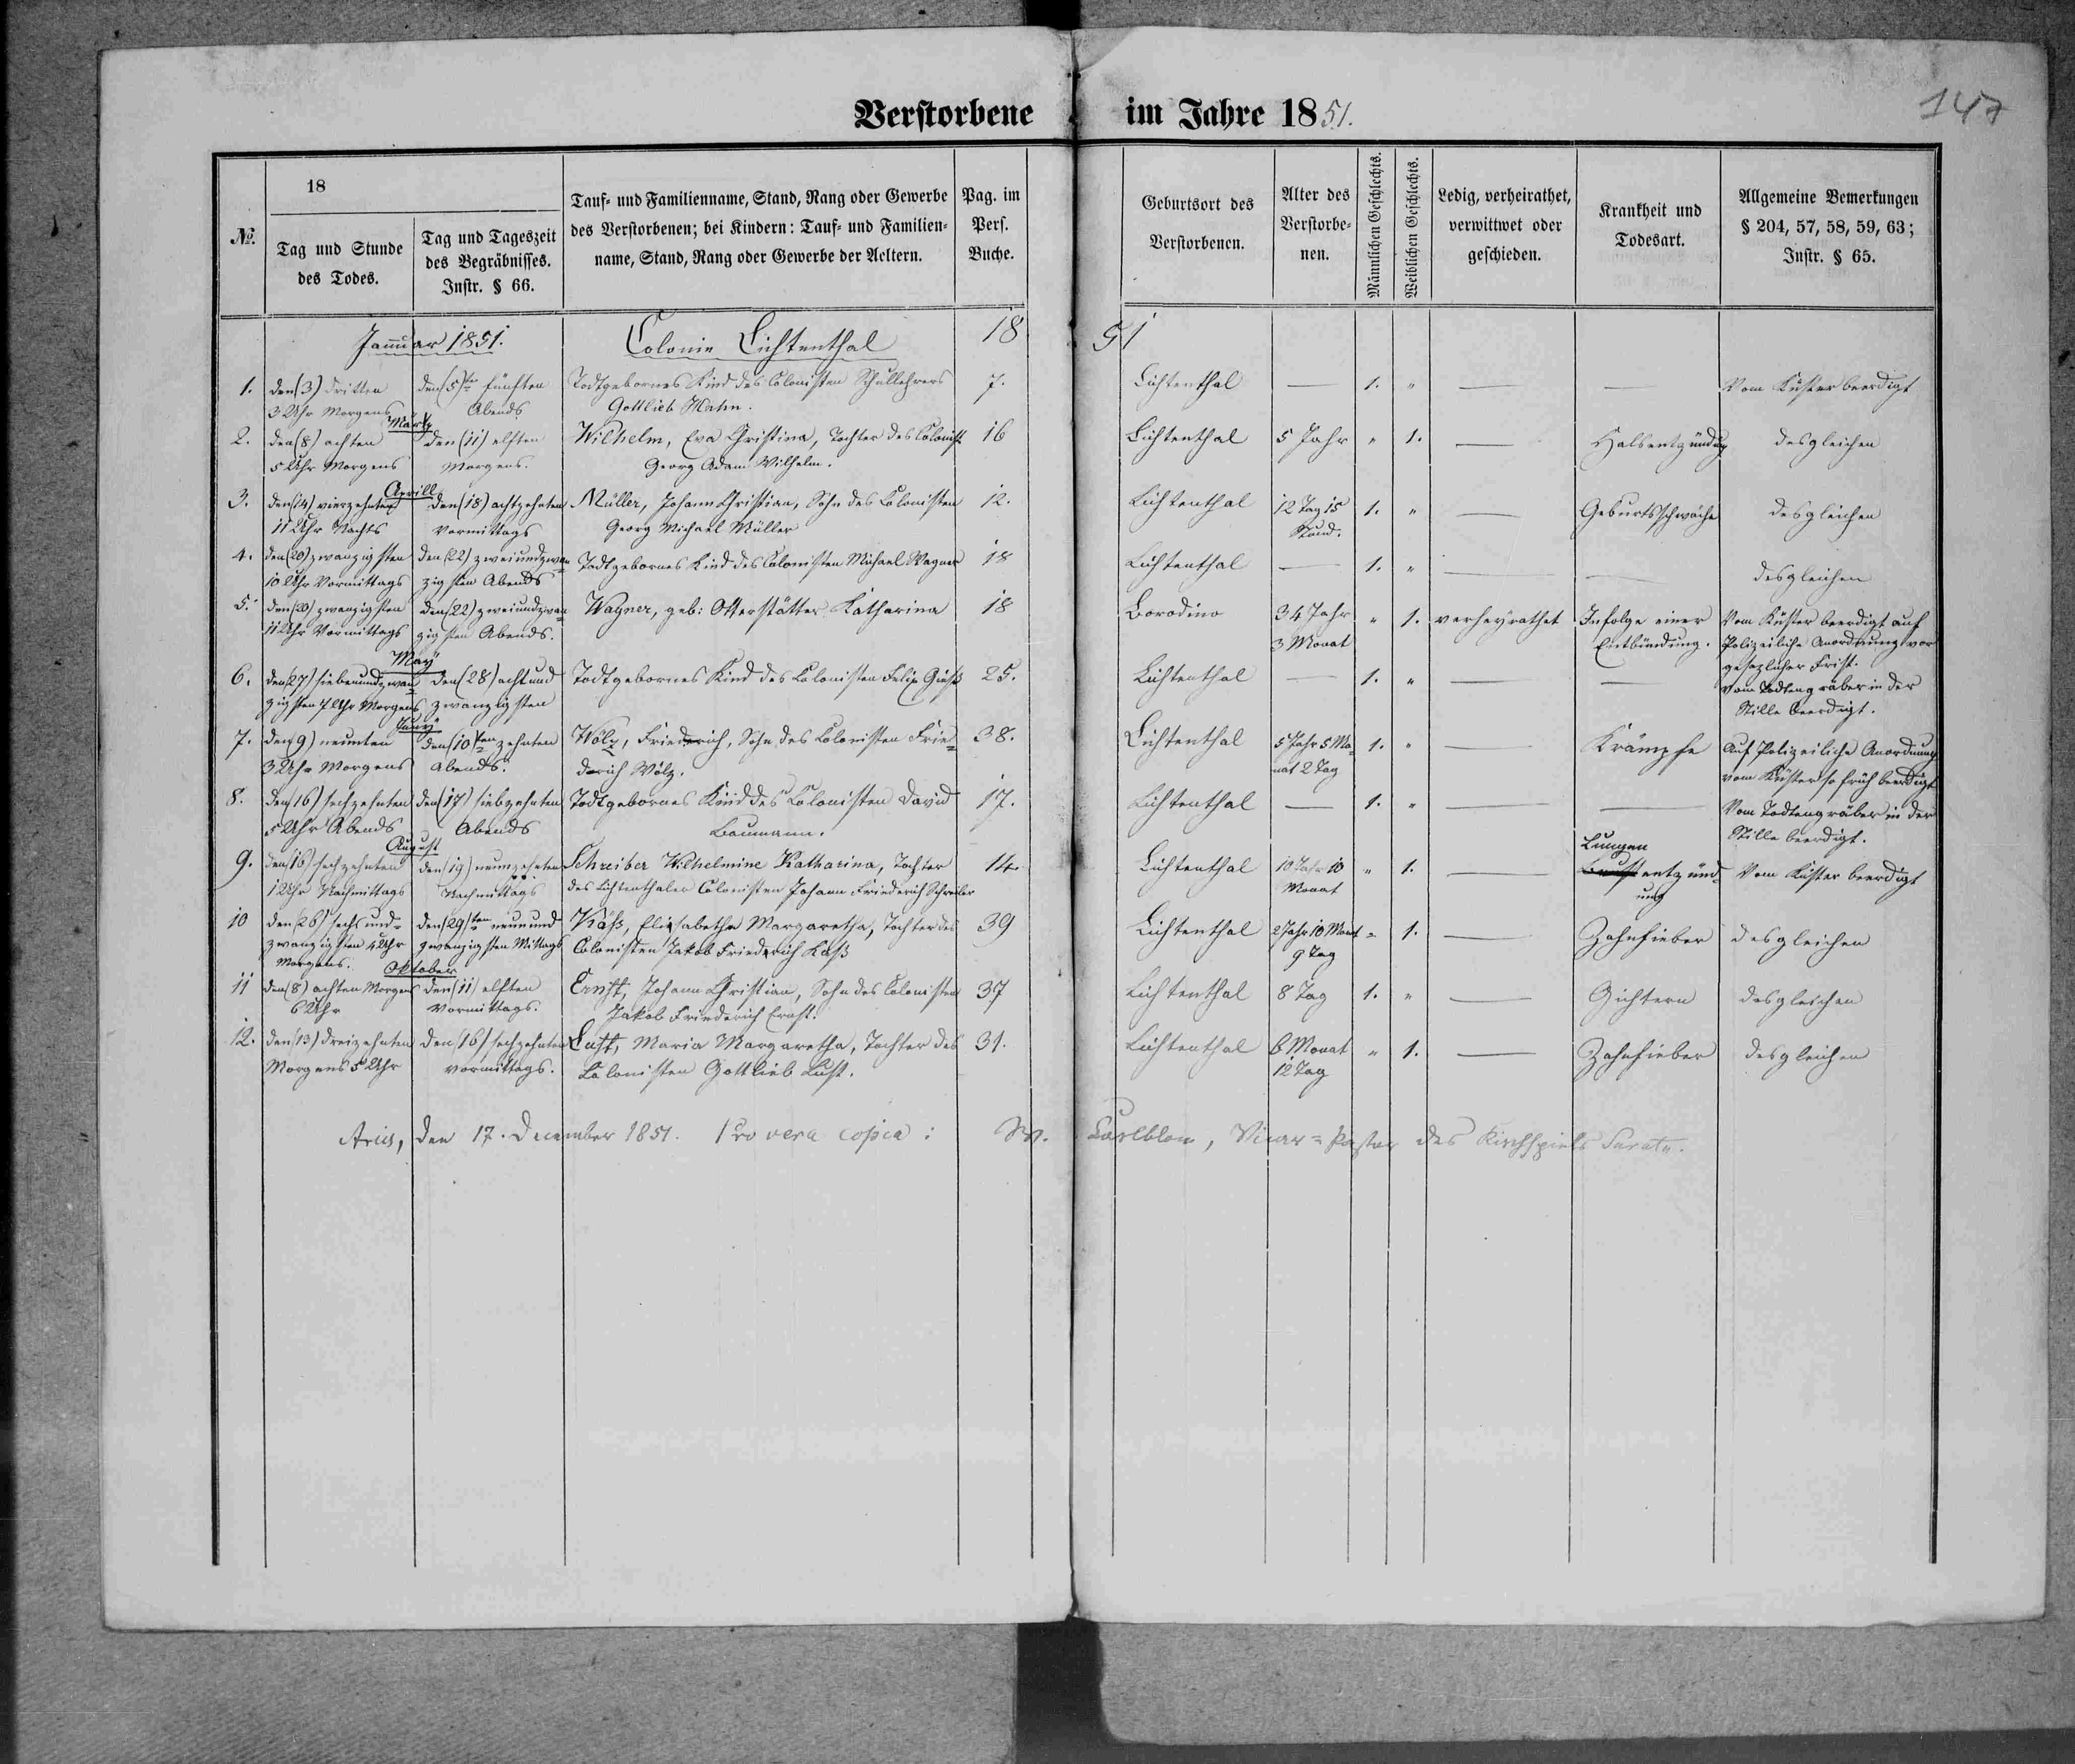 Verstorbene im Jahre 1851.
147
№.
18
Tag und Stunde des Todes.
Tag und Tageszeit des Begräbnisses. Instr. § 66.
Tauf- und Familienname, Stand, Rang oder Gewerbe des Verstorbenen; bei Kindern: Tauf- und Familienname, Stand, Rang oder Gewerbe der Aeltern.
Pag. im Pers. Buche.
Geburtsort des Verstorbenen.
Alter des Verstorbenen.
Männlichen Geschlechts.
Weiblichen Geschlechts.
Ledig, verheirathet, verwittwet oder geschieden.
Krankheit und Todesart.
Allgemeine Bemerkungen § 204, 57, 58, 59, 63; Instr. § 65.
Januar 1851. Colonie Lichtenthal 18 51
1. den (3) dritten den (5)ten fünften Todtgebornes Kind des Colonisten Schullehrers 7. Lichtenthal — 1. " — — Vom Küster beerdigt
3 Uhr Morgens Abends Gottlieb Mahn.
März
2. den (8) achten den (11) elften Wilhelm, Eva Christina, Tochter des Colonist 16 Lichtenthal 5 Jahr " 1. — Halsentzündung desgleichen
5 Uhr Morgens Morgens. Georg Adam Wilhelm.
Aprill
3. den (14) vierzehnten den (18) achtzehnten Müller, Johann Christian, Sohn des Colonisten 12. Lichtenthal 12 Tag 15 1. " — Geburtsschwäche desgleichen
11 Uhr Nachts Vormittags Georg Michael Müller Stund.
4. den (20) zwanzigsten den (22) zweiundzwan= Todtgebornes Kind des Colonisten Michael Wagner 18 Lichtenthal — 1. " — — desgleichen
10 Uhr Vormittags zigsten Abends
5. den (20) zwanzigsten den (22) zweiundzwan= Wagner, geb: Otterstätter Katharina 18 Borodino 34 Jahr " 1. verheyrathet Infolge einer Vom Küster beerdigt auf
11 Uhr Vormittags zigsten Abends. 3 Monat Entbindung. Polizeiliche Anordnung vor
gesezlicher Frist.
May
6. den (27) siebenundzwan= den (28) acht und Todtgebornes Kind des Colonisten Felix 25. Lichtenthal — 1. " — — Vom Todtengräber in der
zigsten 7 Uhr Morgens zwanzigsten Stille beerdigt.
Juny
7. den (9) neunten den (10)ten zehnten Wölz, Friederich, Sohn des Colonisten Frie= 38. Lichtenthal 5 Jahr 5 Mo= 1. " — Krämpfe Auf Polizeiliche Anordnung
3 Uhr Morgens Abends. derich Wölz. nat 2 Tag vom Küster so früh beerdigt
8. den (16) sechzehnten den (17) siebzehnten Todtgebornes Kind des Colonisten David 17. Lichtenthal — 1. " — — Vom Todtengräber in der
5 Uhr Abends Abends Baumann. Stille beerdigt.
August
9. den (16) sechzehnten den (19) neunzehnten Schreiber Wilhelmine Katharina, Tochter 14. Lichtenthal 10 Jahr 10 " 1. — Lungen entzünd= Vom Küster beerdigt
1 Uhr Nachmittags Nachmittags des Lichtenthaler Colonisten Johann Friederich Schreiber Monat ung
10 den (26) sechs und= den (29)ten neun und Käß, Elisabetha Margaretha, Tochter des 39 Lichtenthal 2 Jahr 10 Monat " 1. — Zahnfieber desgleichen
zwanzigsten 4 Uhr zwanzigsten Mittags Colonisten Jakob Friederich Käß 9 Tag
Morgens.
Oktober
11 den (8) achten Morgens den (11) elften Ernst, Johann Christian, Sohn des Colonisten 37 Lichtenthal 8 Tag 1. " — Gichtern desgleichen
6 Uhr Vormittags. Jakob Friederich Ernst.
12. den (13) dreizehnten den (16) sechzehnten Lust, Maria Margaretha, Tochter des 31. Lichtenthal 6 Monat " 1. — Zahnfieber desgleichen
Morgens 5 Uhr vormittags. Colonisten Gottlieb Lust. 12 Tag
den 17. December 1851. Pro vera copia: W. Carlblom, Vicar=Pastor des Kirchspiels Sarata.